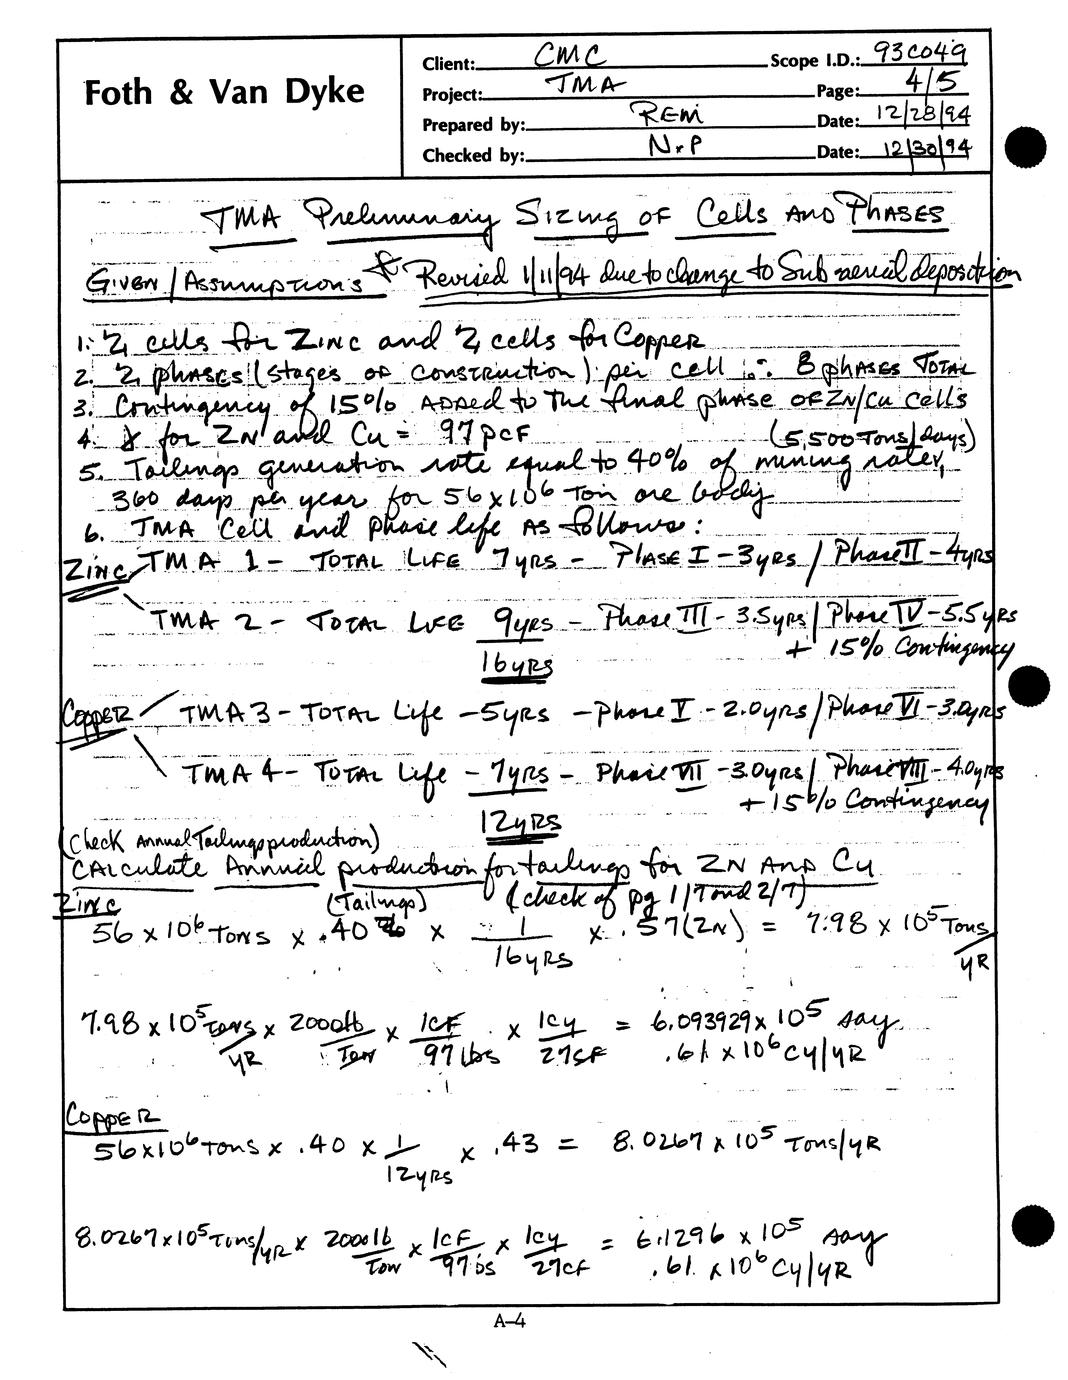 Foth & Van Dyke
Client: CMC Scope I.D.: 93C049
Project: TMA Page: 4/5
Prepared by: REM Date: 12/28/94
Checked by: NxP Date: 12/30/94
TMA Preliminary Sizing of Cells and Phases
Given/Assumptions * Revised 1/11/94 due to change to Sub aerial deposition
1. 2 cells for Zinc and 2 cells for Copper
2. 2 phases (stages of construction) per cell ∴ 8 phases Total
3. Contingency of 15% Added to the final phase of Zn/Cu cells
4. γ for Zn and Cu = 97 pcf (5,500 Tons/days)
5. Tailings generation rate equal to 40% of mining rate,
360 days per year for 56x10⁶ Ton ore body
6. TMA Cell and phase life as follows:
Zinc TMA 1 - Total Life 7yrs - Phase I - 3yrs / Phase II - 4yrs
TMA 2 - Total Life 9yrs - Phase III - 3.5yrs / Phase IV - 5.5yrs
+ 15% Contingency
16yrs
Copper TMA 3 - Total Life - 5yrs - Phase V - 2.0yrs / Phase VI - 3.0yrs
TMA 4 - Total Life - 7yrs - Phase VII - 3.0yrs / Phase VIII - 4.0yrs
+ 15% Contingency
12yrs
(Check Annual Tailings production)
Calculate Annual production for tailings for Zn and Cu
Zinc (Tailings) (check of pg 1/7 and 2/7)
56 x 10⁶ Tons x .40 x 1/16yrs x .57(Zn) = 7.98 x 10⁵ Tons/yr
7.98 x 10⁵ Tons/yr x 2000lb/Ton x 1CF/97lbs x 1cy/27SF = 6.093929 x 10⁵ say
.61 x 10⁶ Cy/yr
Copper
56x10⁶ Tons x .40 x 1/12yrs x .43 = 8.0267 x 10⁵ Tons/yr
8.0267x10⁵ Tons/yr x 2000lb/Ton x 1CF/97lbs x 1cy/27CF = 6.1296 x 10⁵ say
.61 x 10⁶ Cy/yr
A-4